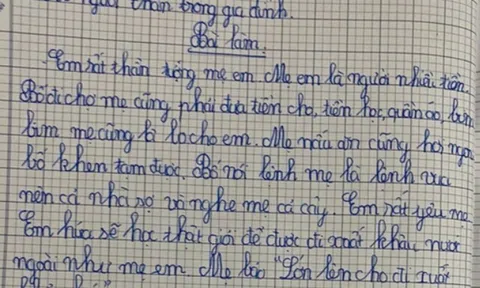 người thân trong gia đình.
Bài làm.
Em rất thần tượng mẹ em. Mẹ em là người nhiều tiền.
Bố đi chợ mẹ cũng phải đưa tiền cho, tiền học, quần áo, bỉm
bỉm mẹ cũng lo cho em. Mẹ nấu ăn cũng hơi ngon
bố khen tạm được. Bố nói lệnh mẹ là lệnh vua
nên cả nhà sợ và nghe mẹ cả. Em rất yêu mẹ
Em hứa sẽ học thật giỏi để được đi xuất khẩu nước
ngoài như mẹ em. Mẹ bảo "Lớn lên cho đi xuất